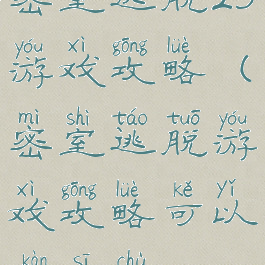 密室逃脱15
yóu xì gōng lüè
游戏攻略（
mì shì táo tuō yóu
密室逃脱游
xì gōng lüè kě yǐ
戏攻略可以
kàn sī chù